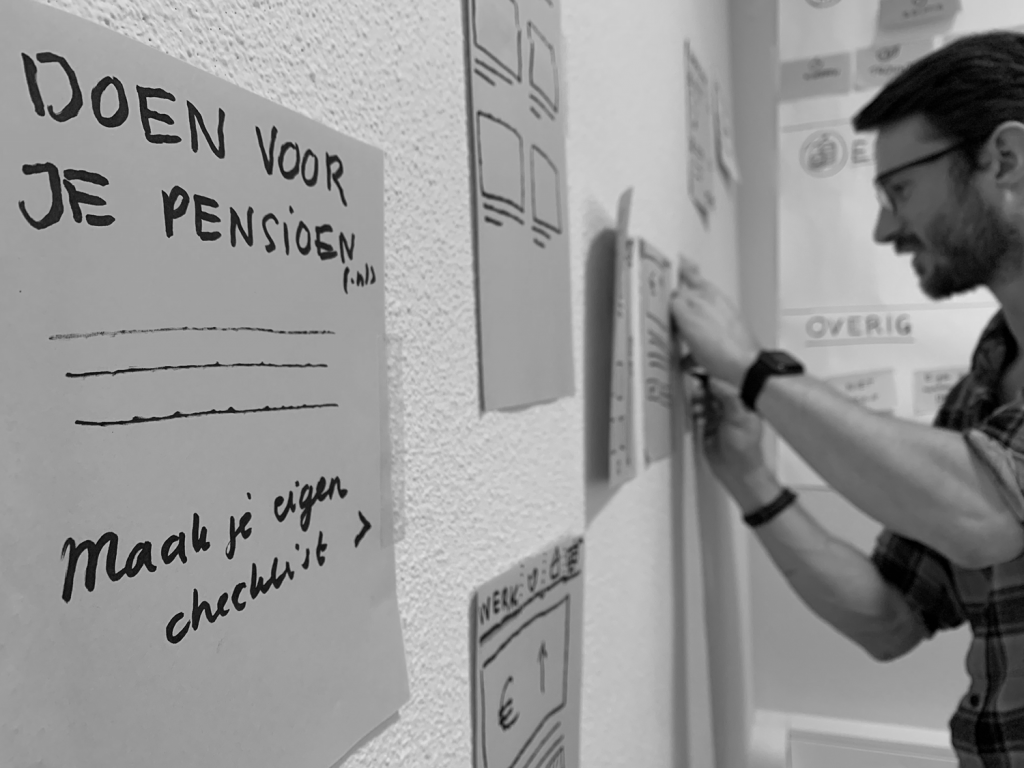 DOEN VOOR
JE PENSIOEN
(.nl)
Maak je eigen
checklist >
WERK
€ ↑
OVERIG